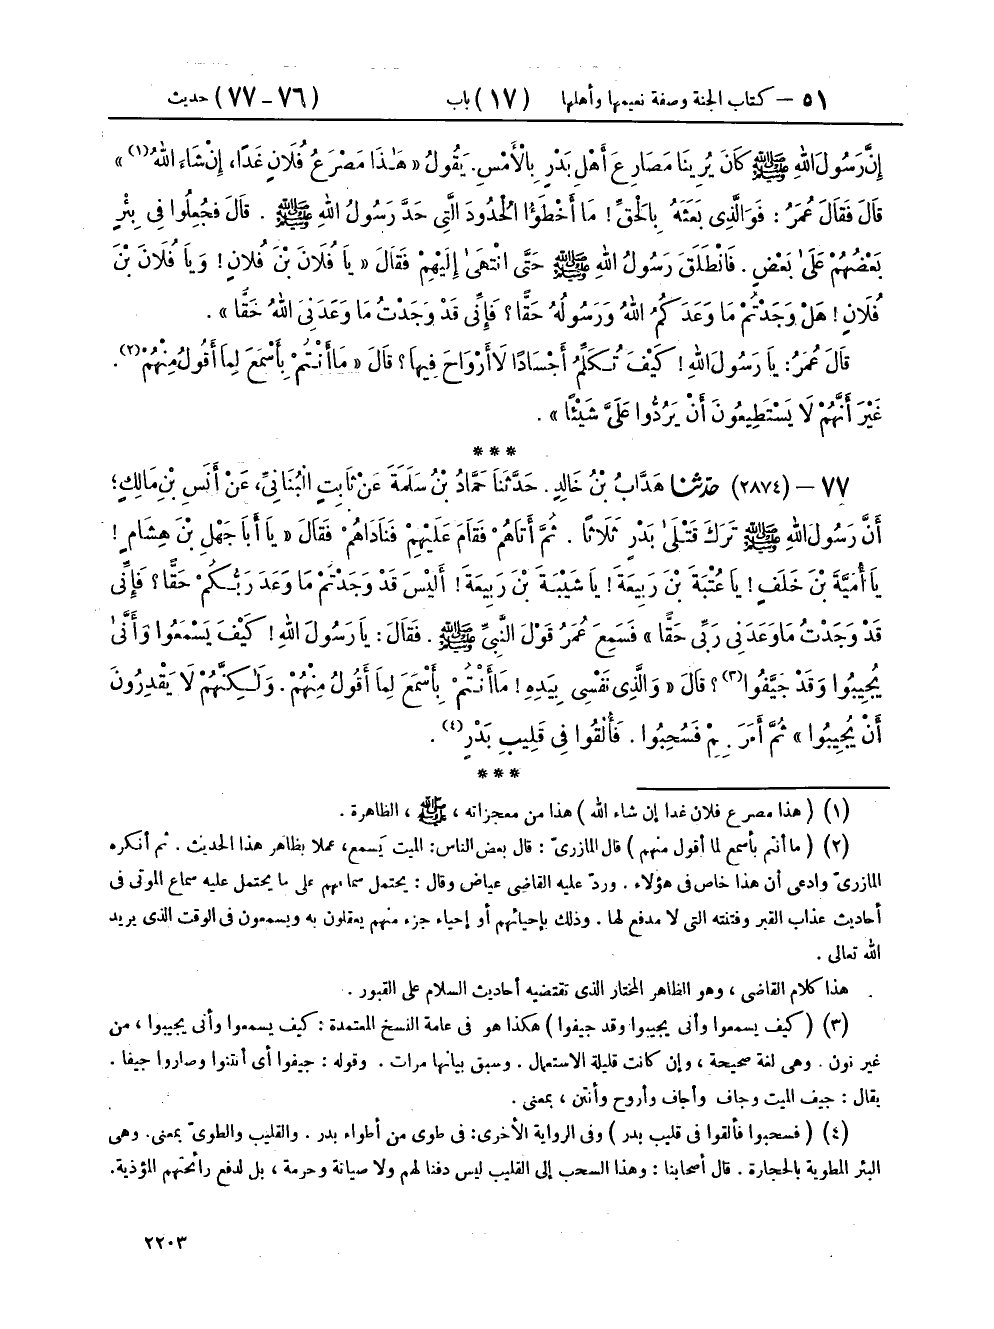 ٥١ – كتاب الجنة وصفة نعيمها وأهلها (١٧) باب (٧٦-٧٧) حديث
إِنَّ رَسُولَ اللهِ ﷺ كَانَ يُرِينَا مَصَارِعَ أَهْلِ بَدْرٍ بِالْأَمْسِ. يَقُولُ « هَٰذَا مَصْرَعُ فُلَانٍ غَدًا، إِنْ شَاءَ اللهُ(١) »
قَالَ فَقَالَ عُمَرُ : فَوَالَّذِى بَعَثَهُ بِالْحَقِّ ! مَا أَخْطَؤُا الْحُدُودَ الَّتِى حَدَّ رَسُولُ اللهِ ﷺ . قَالَ فَجُعِلُوا فِى بِئْرٍ
بَعْضُهُمْ عَلَىٰ بَعْضٍ . فَانْطَلَقَ رَسُولُ اللهِ ﷺ حَتَّى انْتَهَىٰ إِلَيْهِمْ فَقَالَ « يَا فُلَانَ بْنَ فُلَانٍ ! وَيَا فُلَانَ بْنَ
فُلَانٍ ! هَلْ وَجَدْتُمْ مَا وَعَدَكُمُ اللهُ وَرَسُولُهُ حَقًّا ؟ فَإِنِّى قَدْ وَجَدْتُ مَا وَعَدَنِى اللهُ حَقًّا » .
قَالَ عُمَرُ : يَا رَسُولَ اللهِ ! كَيْفَ تُكَلِّمُ أَجْسَادًا لَا أَرْوَاحَ فِيهَا ؟ قَالَ « مَا أَنْتُمْ بِأَسْمَعَ لِمَا أَقُولُ مِنْهُمْ(٢) .
غَيْرَ أَنَّهُمْ لَا يَسْتَطِيعُونَ أَنْ يَرُدُّوا عَلَىَّ شَيْئًا » .
***
٧٧ – (٢٨٧٤) حَدَّثَنَا هَدَّابُ بْنُ خَالِدٍ . حَدَّثَنَا حَمَّادُ بْنُ سَلَمَةَ عَنْ ثَابِتٍ الْبُنَانِىِّ، عَنْ أَنَسِ بْنِ مَالِكٍ ؛
أَنَّ رَسُولَ اللهِ ﷺ تَرَكَ قَتْلَىٰ بَدْرٍ ثَلَاثًا . ثُمَّ أَتَاهُمْ فَقَامَ عَلَيْهِمْ فَنَادَاهُمْ فَقَالَ « يَا أَبَا جَهْلِ بْنَ هِشَامٍ !
يَا أُمَيَّةَ بْنَ خَلَفٍ ! يَا عُتْبَةَ بْنَ رَبِيعَةَ ! يَا شَيْبَةَ بْنَ رَبِيعَةَ ! أَلَيْسَ قَدْ وَجَدْتُمْ مَا وَعَدَ رَبُّكُمْ حَقًّا ؟ فَإِنِّى
قَدْ وَجَدْتُ مَا وَعَدَنِى رَبِّى حَقًّا » فَسَمِعَ عُمَرُ قَوْلَ النَّبِىِّ ﷺ . فَقَالَ : يَا رَسُولَ اللهِ ! كَيْفَ يَسْمَعُوا وَأَنَّىٰ
يُجِيبُوا وَقَدْ جَيَّفُوا(٣) ؟ قَالَ « وَالَّذِى نَفْسِى بِيَدِهِ ! مَا أَنْتُمْ بِأَسْمَعَ لِمَا أَقُولُ مِنْهُمْ . وَلَٰكِنَّهُمْ لَا يَقْدِرُونَ
أَنْ يُجِيبُوا » ثُمَّ أَمَرَ بِهِمْ فَسُحِبُوا . فَأُلْقُوا فِى قَلِيبِ بَدْرٍ(٤) .
***
(١) ( هذا مصرع فلان غدا إن شاء الله ) هذا من معجزاته ، ﷺ ، الظاهرة .
(٢) ( ما أنتم بأسمع لما أقول منهم ) قال المازرىّ : قال بعض الناس: الميت يَسمع، عملا بظاهر هذا الحديث . ثم أنكره
المازرىّ وادعى أن هذا خاص فى هؤلاء . وردّ عليه القاضى عياض وقال : يحتمل سماعهم على ما يحتمل عليه سماع الموتى فى
أحاديث عذاب القبر وفتنته التى لا مدفع لها . وذلك بإحيائهم أو إحياء جزء منهم يعقلون به ويسمعون فى الوقت الذى يريد
الله تعالى .
هذا كلام القاضى ، وهو الظاهر المختار الذى تقتضيه أحاديث السلام على القبور .
(٣) ( كيف يسمعوا وأنى يجيبوا وقد جيفوا ) هكذا هو فى عامة النسخ المعتمدة : كيف يسمعوا وأنى يجيبوا ، من
غير نون . وهى لغة صحيحة ، وإن كانت قليلة الاستعمال . وسبق بيانها مرات . وقوله : جيفوا أى أنتنوا وصاروا جيفا .
يقال : جيف الميت وجاف وأجاف وأروح وأنتن ، بمعنى .
(٤) ( فسحبوا فألقوا فى قليب بدر ) وفى الرواية الأخرى: فى طوى من أطواء بدر . والقليب والطوىّ بمعنى. وهى
البئر المطوية بالحجارة . قال أصحابنا : وهذا السحب إلى القليب ليس دفنا لهم ولا صيانة وحرمة ، بل لدفع رائحتهم المؤذية.
٢٢٠٣